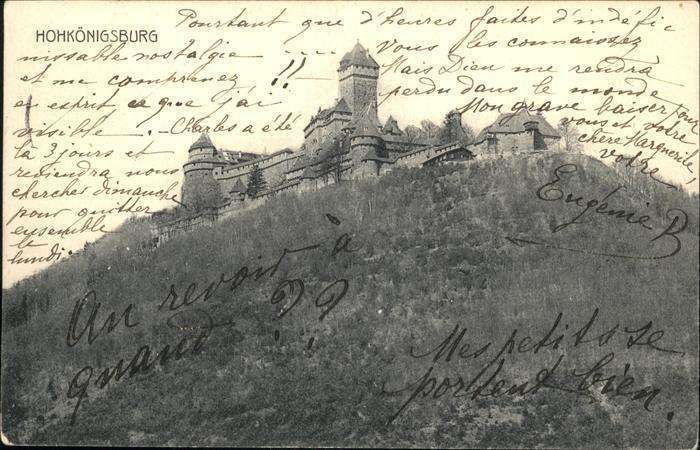 HOHKÖNIGSBURG
Pourtant que d'heures faites d'indéfi-
nissable nostalgie ....
et me comprenez !!
Vous les connaissez
Mais Dieu me rendra
en esprit ce que j'ai
perdu dans le monde
visible. - Charles a été
là 3 jours et
reviendra nous
chercher dimanche
pour quitter
ensemble
le
lundi.
Mon grave baiser pour
vous et votre
chère Marguerite,
Votre
Eugénie B
Au revoir à
quand ??
Mes petits se
portent bien.